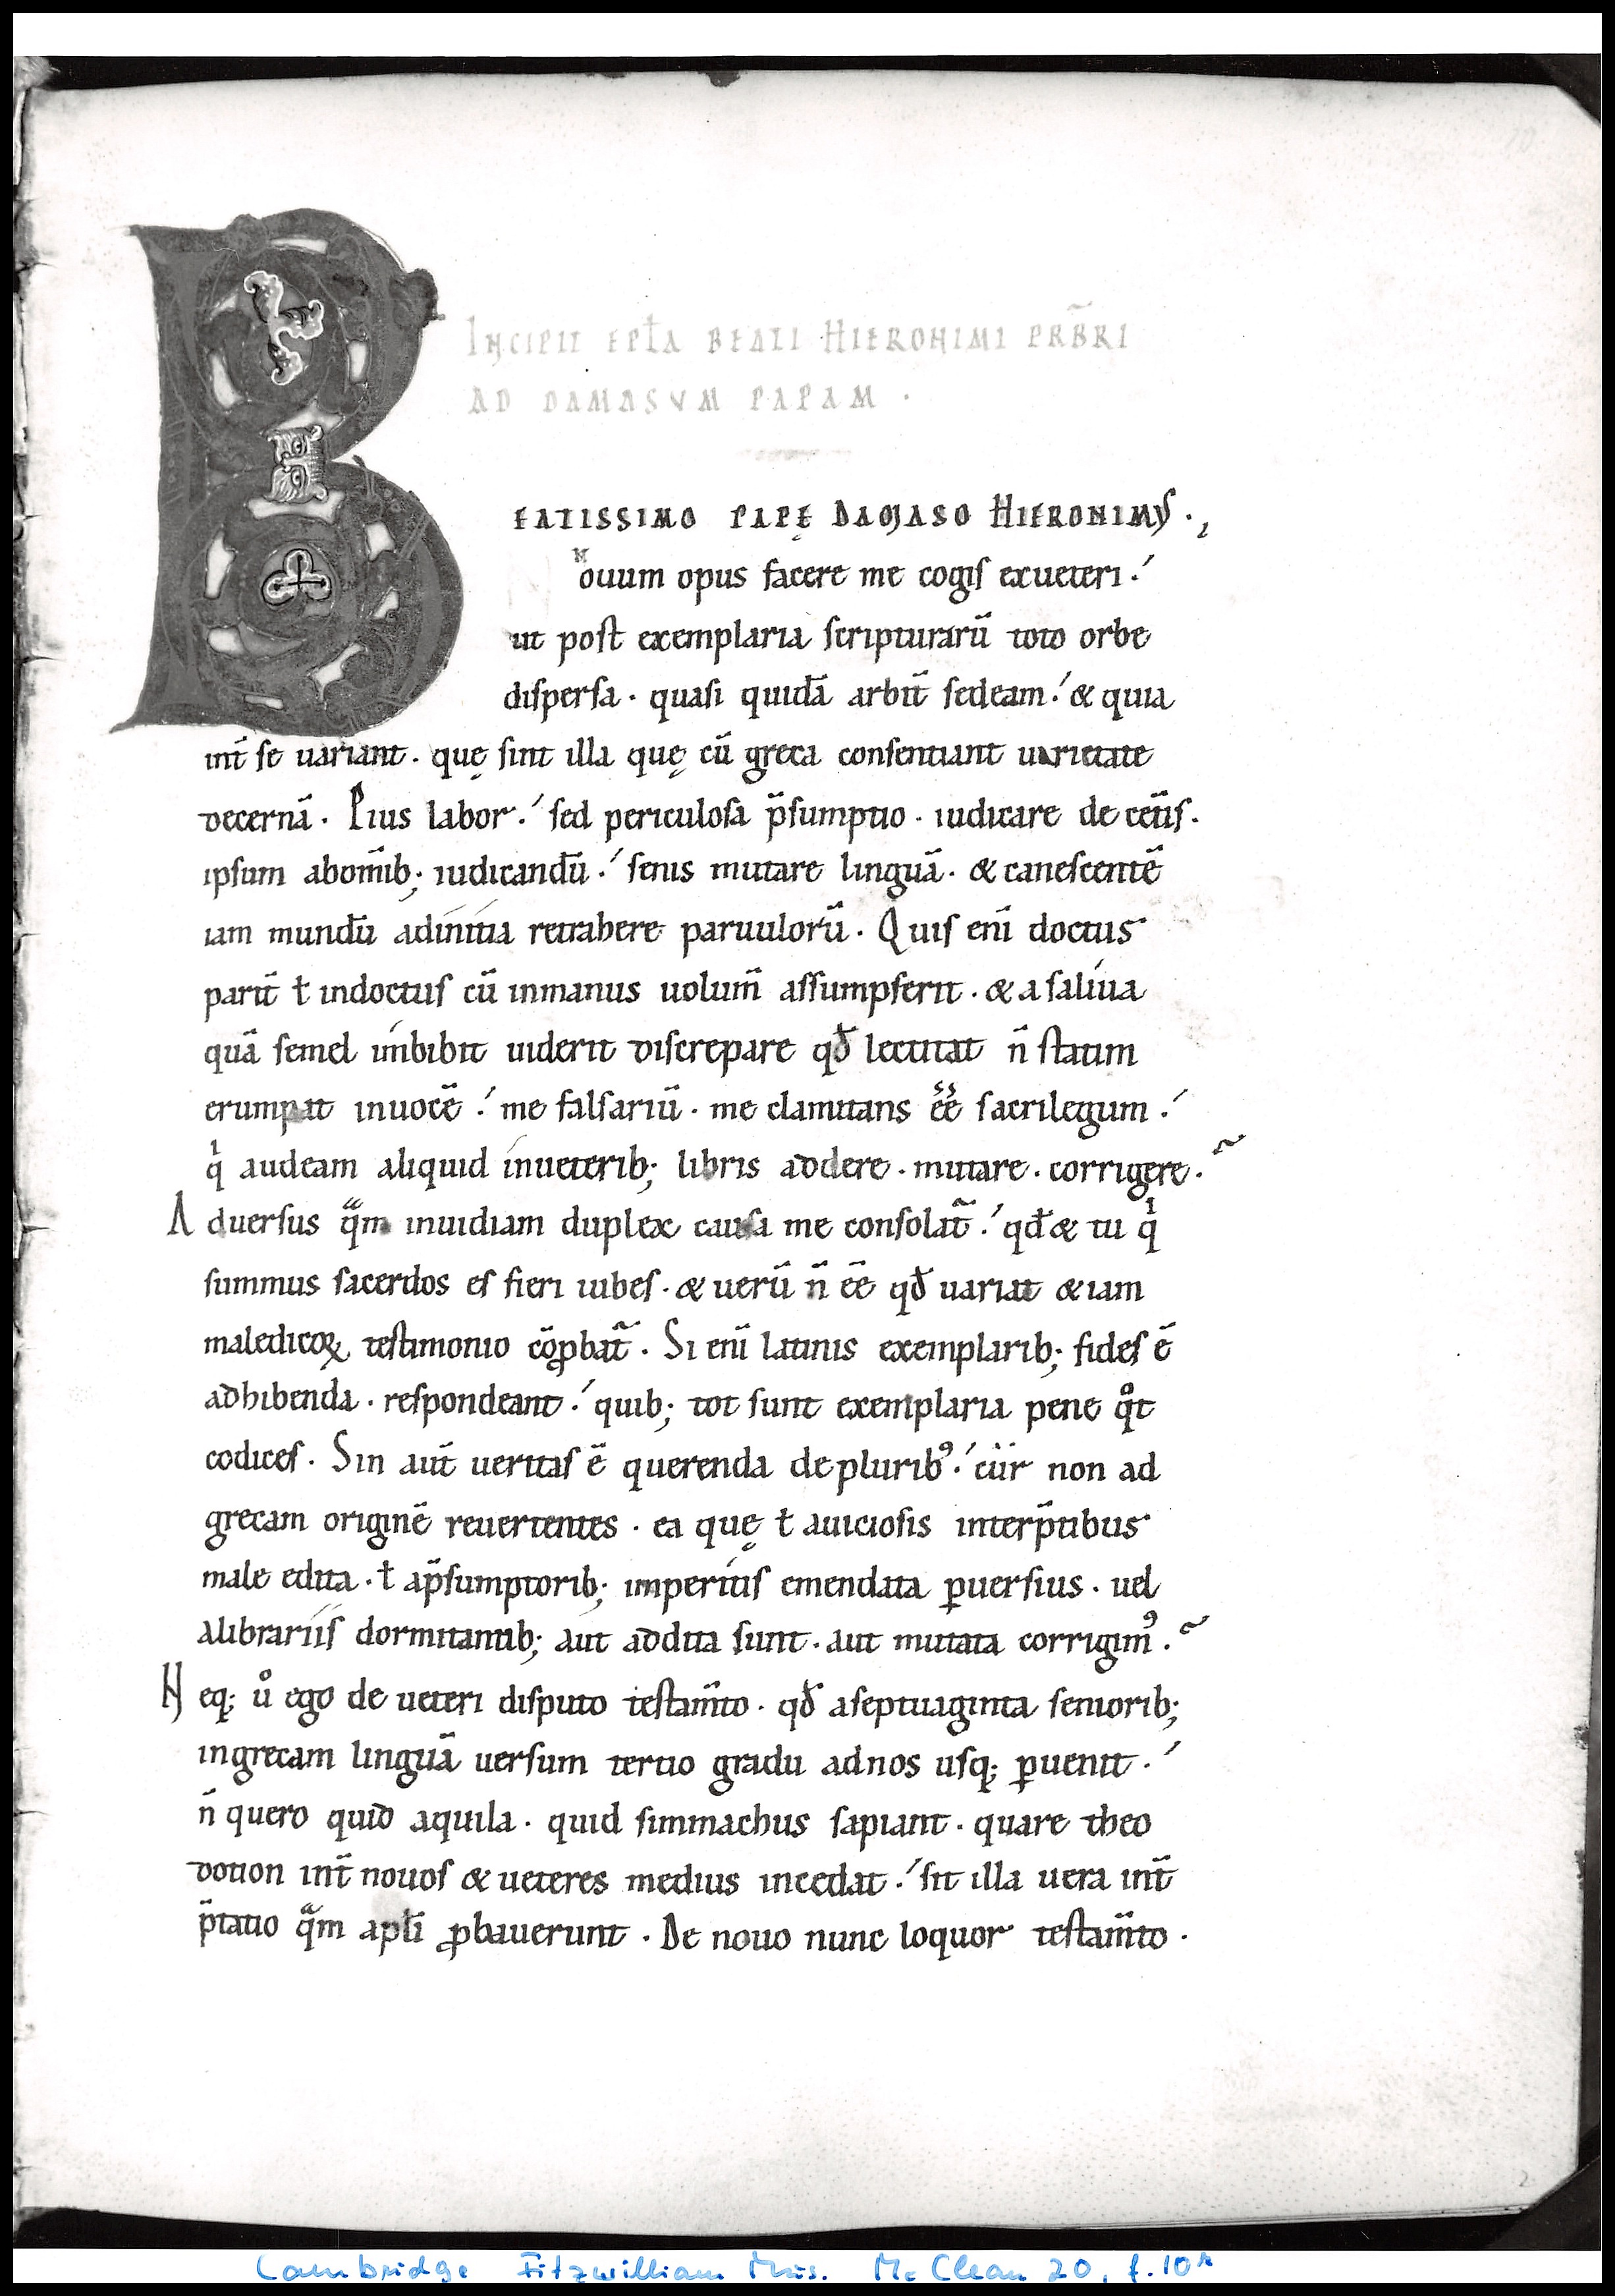 INCIPIT EPŁA BEATI HIERONIMI PRBR̃I
AD DAMASVM PAPAM .
BEATISSIMO PAPĘ DAMASO HIERONIMVS .,
Nouum opus facere me cogis exueteri .´
ut post exemplaria scripturarū toto orbe
dispersa . quasi quidā arbit̄ sedeam .´ & quia
int̄ se uariant . quę sint illa quę cū greca consentiant uarietate
decernā . Pius labor .´ sed periculosa p̄sumptio . iudicare de cet̄is .
ipsum abom̄ib; iudicandū .´ senis mutare linguā . & canescentē
iam mundū adinitia retrahere paruulorū . Quis enī doctus
parit̄ ł indoctus cū inmanus uolum̄ assumpserit . & a saliua
quā semel imbibit uiderit discrepare qđ lectitat n̄ statim
erumpat inuocē .´ me falsariū . me clamitans ēē sacrilegum .´
qͥ audeam aliquid inueterib; libris addere . mutare . corrigere . ~
Aduersus qͣm inuidiam duplex causa me consolat̃ .´ qđ & tu qͥ
summus sacerdos es fieri iubes . & uerū n̄ ēē qđ uariat & iam
maledicoꝝ testimonio cōꝓbat̃ . Si enī latinis exemplarib; fides ē
adhibenda . respondeant .´ quib; tot sunt exemplaria pene qͦt
codices . Sin aut̄ ueritas ē querenda de plurib᾿ .´ cur non ad
grecam originē reuertentes . ea quę ł auiciosis interp̄tibus
male edita . ł ap̄sumptorib; imperitis emendata ꝑuersius . uel
alibrariis dormitantib; aut addita sunt . aut mutata corrigimꝰ . ~
Neq; uͦ ego de ueteri disputo testam̄to . qđ aseptuaginta seniorib;
ingrecam linguā uersum tertio gradu adnos usq; ꝑuenit .´
n̄ quero quid aquila . quid simmachus sapiant . quare theo
dotion int̄ nouos & ueteres medius incedat .´ sit illa uera int̄
p̄tatio qͣm apłi ꝓbauerunt . De nouo nunc loquor testam̄to .
Cambridge Fitzwilliam Mus. McClean 20, f. 10ʳ